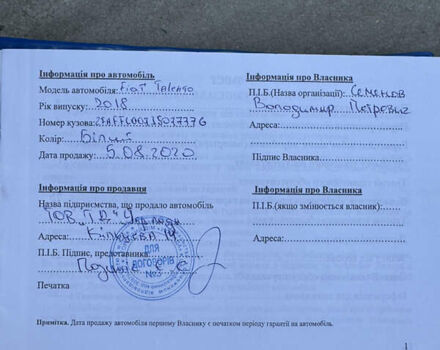 Інформація про автомобіль
Модель автомобіля: Fiat Talento
Рік випуску: 2018
Номер кузова:
Колір: Білий
Дата продажу: 5.08.2020
Інформація про Власника
П.І.Б.(Назва організації): Семенов
Володимир Петрович
Адреса:
Підпис Власника
Інформація про продавця
Назва підприємства, що продало автомобіль
ТОВ
Адреса:
П.І.Б. Підпис, представника:
ДЛЯ
ДОГОВОРІВ
№3
Печатка
Інформація про Власника
П.І.Б.(якщо змінюється власник):
Адреса:
Примітка. Дата продажу автомобіля першому Власнику є початком періоду гарантії на автомобіль.
1